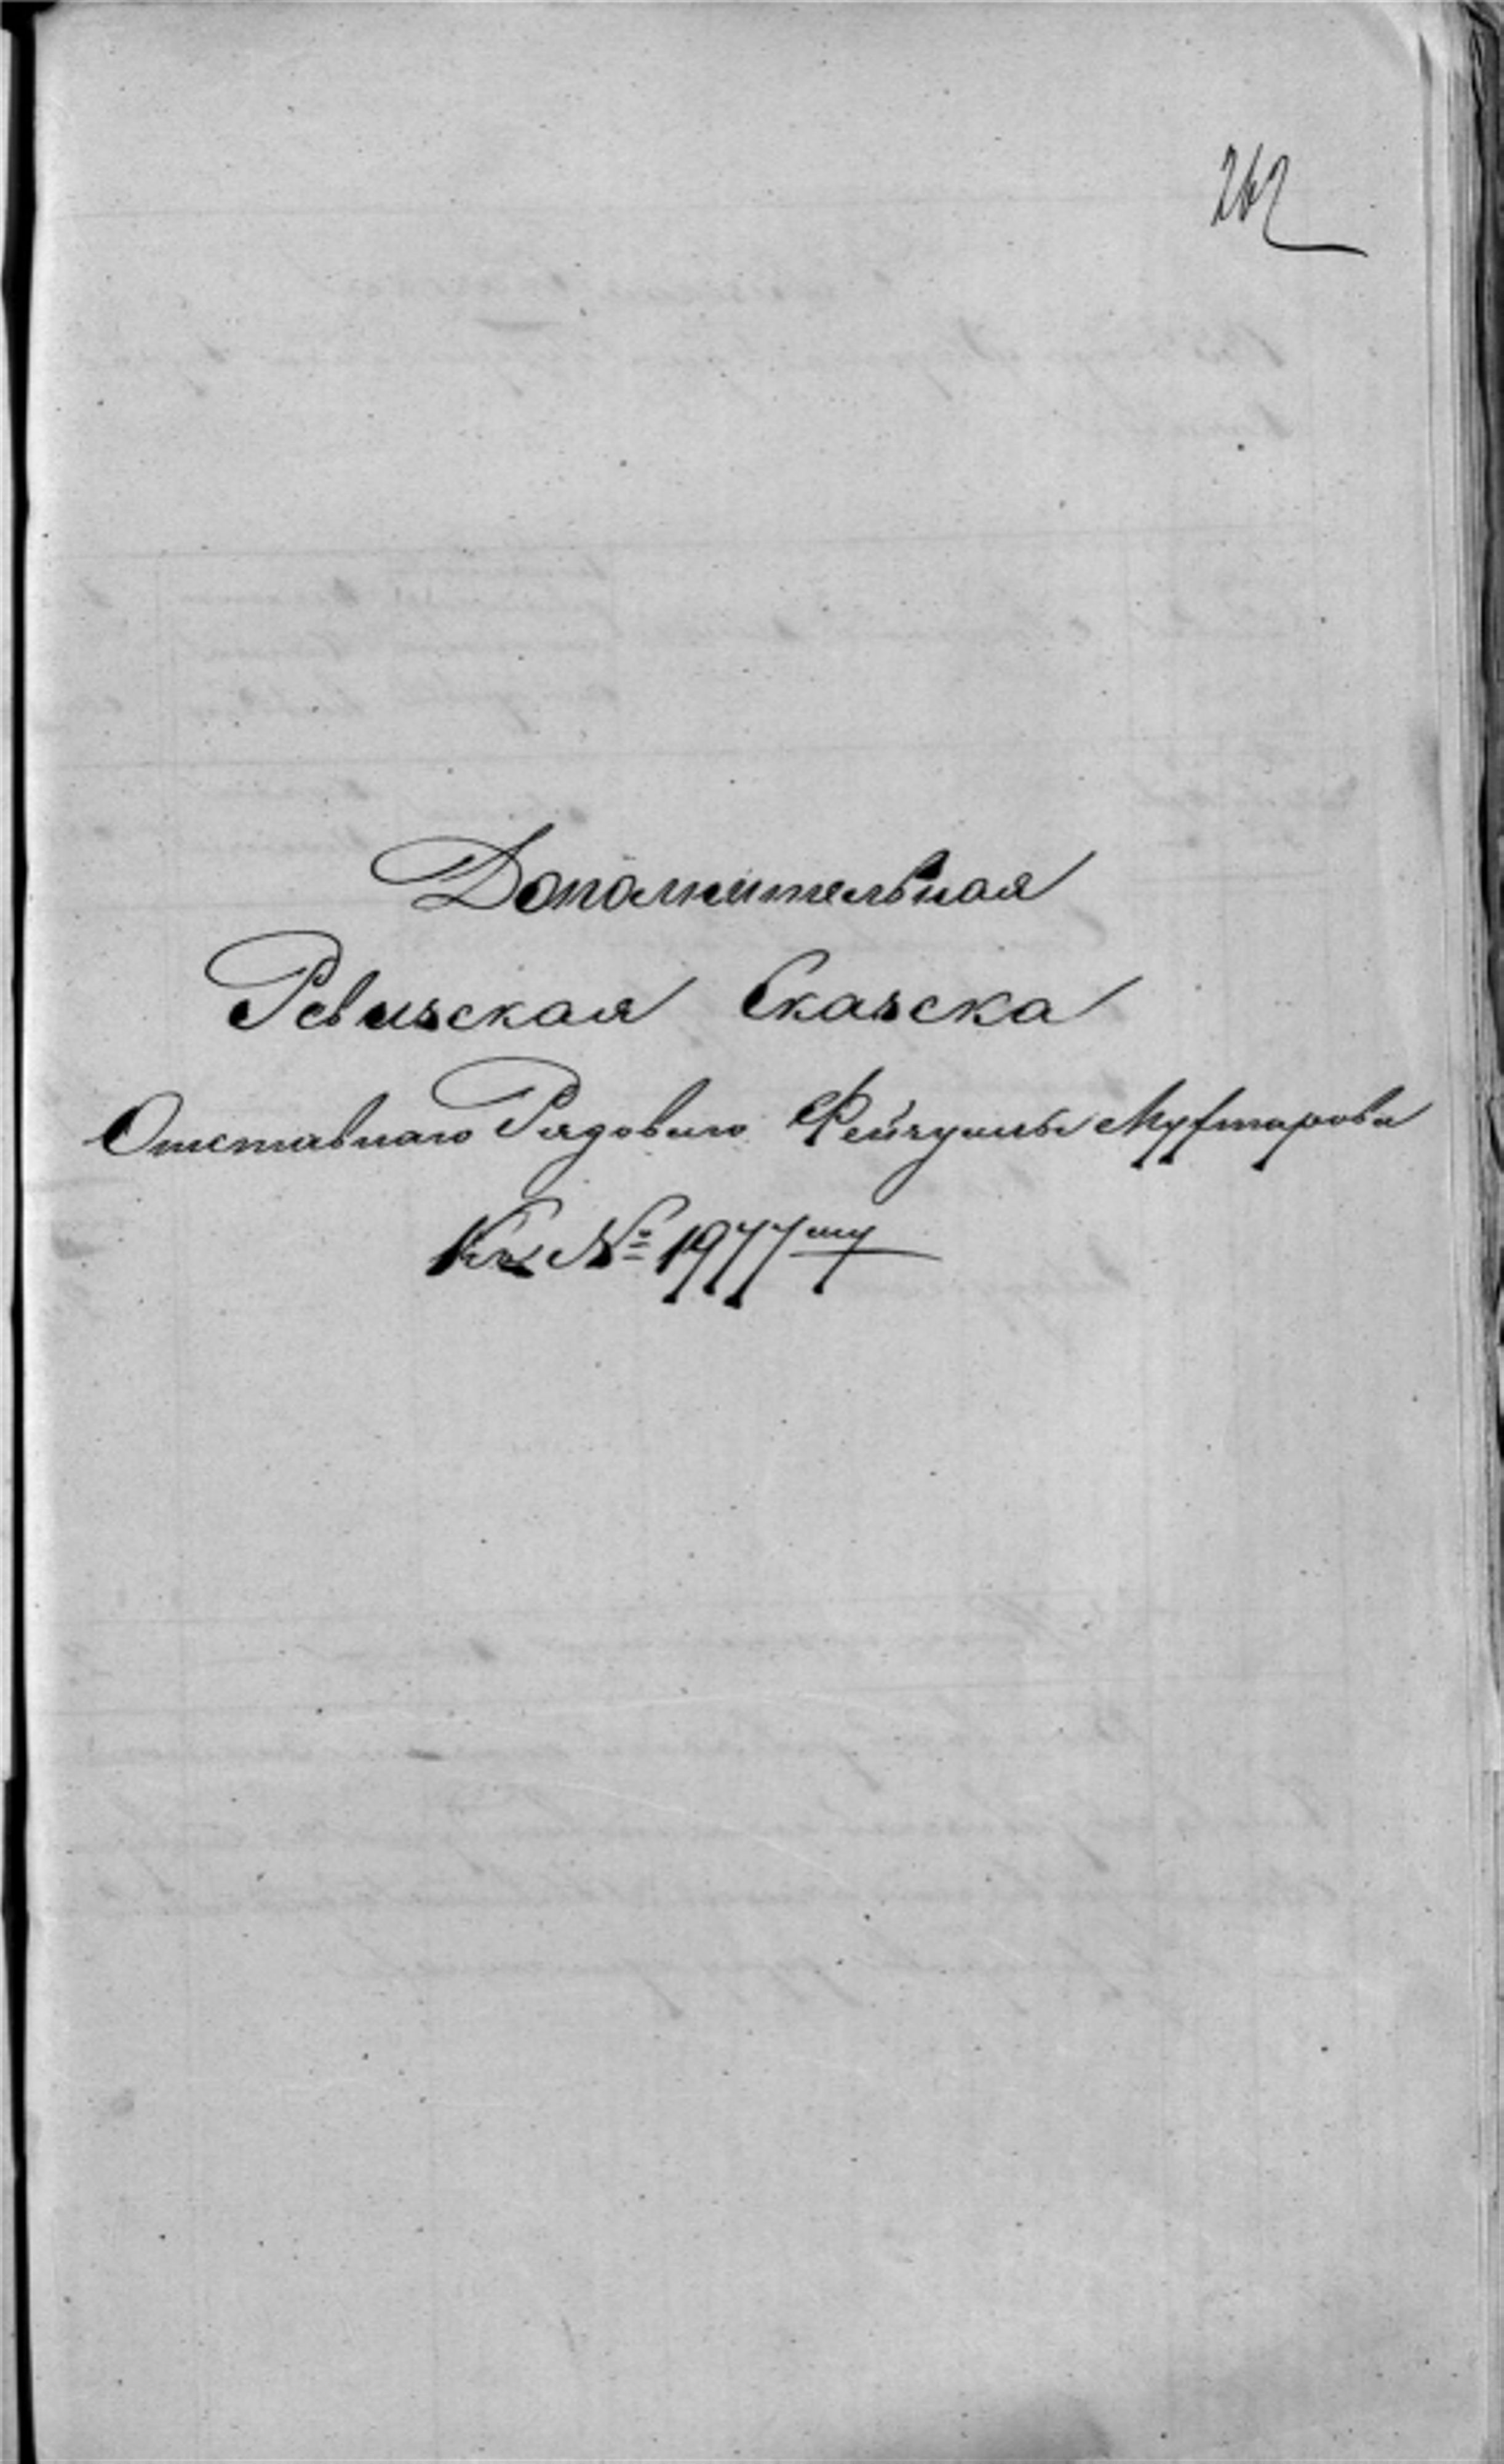 262
Дополнительная
Ревизская Сказска
Отставнаго Рядоваго Фейзуллы Муфтарова
Къ № 1977му